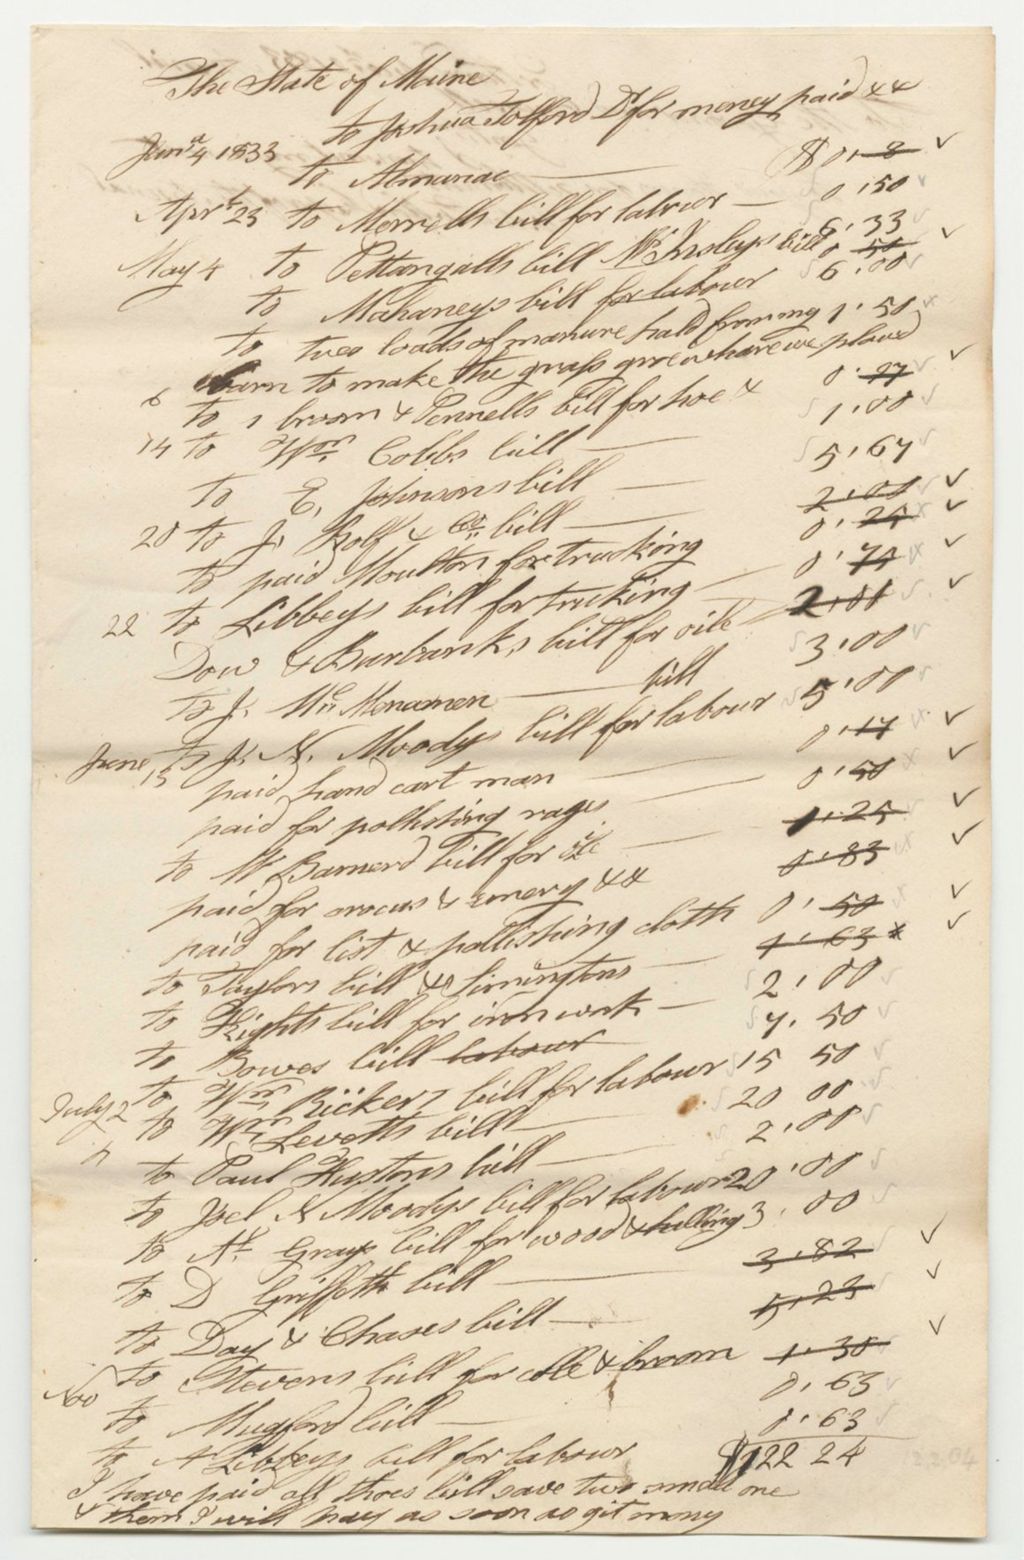 The State of Maine
to Joshua Tolford Dr for money paid &&
Janr 4 1833 to Almanac $0,8
Aprl 23 to Morrells bill for labour 0,50
May 4 to Pettangalls bill Mc Insleys bill 6,33
0 50
to Mahaneys bill for labour 6,00
to two loads of manure hald from my 1,50
barn to make the grass grow whare we plowd
6 to 1 broom & Pennells bill for hoe & 0,77
14 to Wm Cobbs bill 1,00
to E, Johnsons bill 5,67
20 to J, Rolf & Co bill 2,00
to paid Moulton for trucking 0,25
22 to Libbeys bill for trucking 0,75
Dow & Burbanks bill for oile 2,01
to J, Mc Monamen bill 3,00
June to J, N, Moodys bill for labour 5,00
15 paid hand cart man 0,17
paid for pollishing rags 0,50
to W Barnerd bill for oile 1,25
paid for crocus & emery && 0,83
paid for list & pollishing cloth 0,50
to Taylors bill & Simingtons 1,63 *
to Kights bill for iron work 2,00
to Bowes bill labour 7,50
July 2 to Wm Rickers bill for labour 15 50
to Wm Levetts bill 20 00
to Paul Hustons bill 2,00
to Joel N Moodys bill for labour 20,00
to Grays bill for wood & hulling 3,00
to D Griffeth bill 3,82
to Day & Chases bill 5,23
to Stevens bill for oile & broom 1,30
Nov to Mugford bill 0,63
to A Libbeys bill for labour 0,63
$122 24
122.04
I have paid all thoes bill save two small one
& them I will pay as soon as git mony